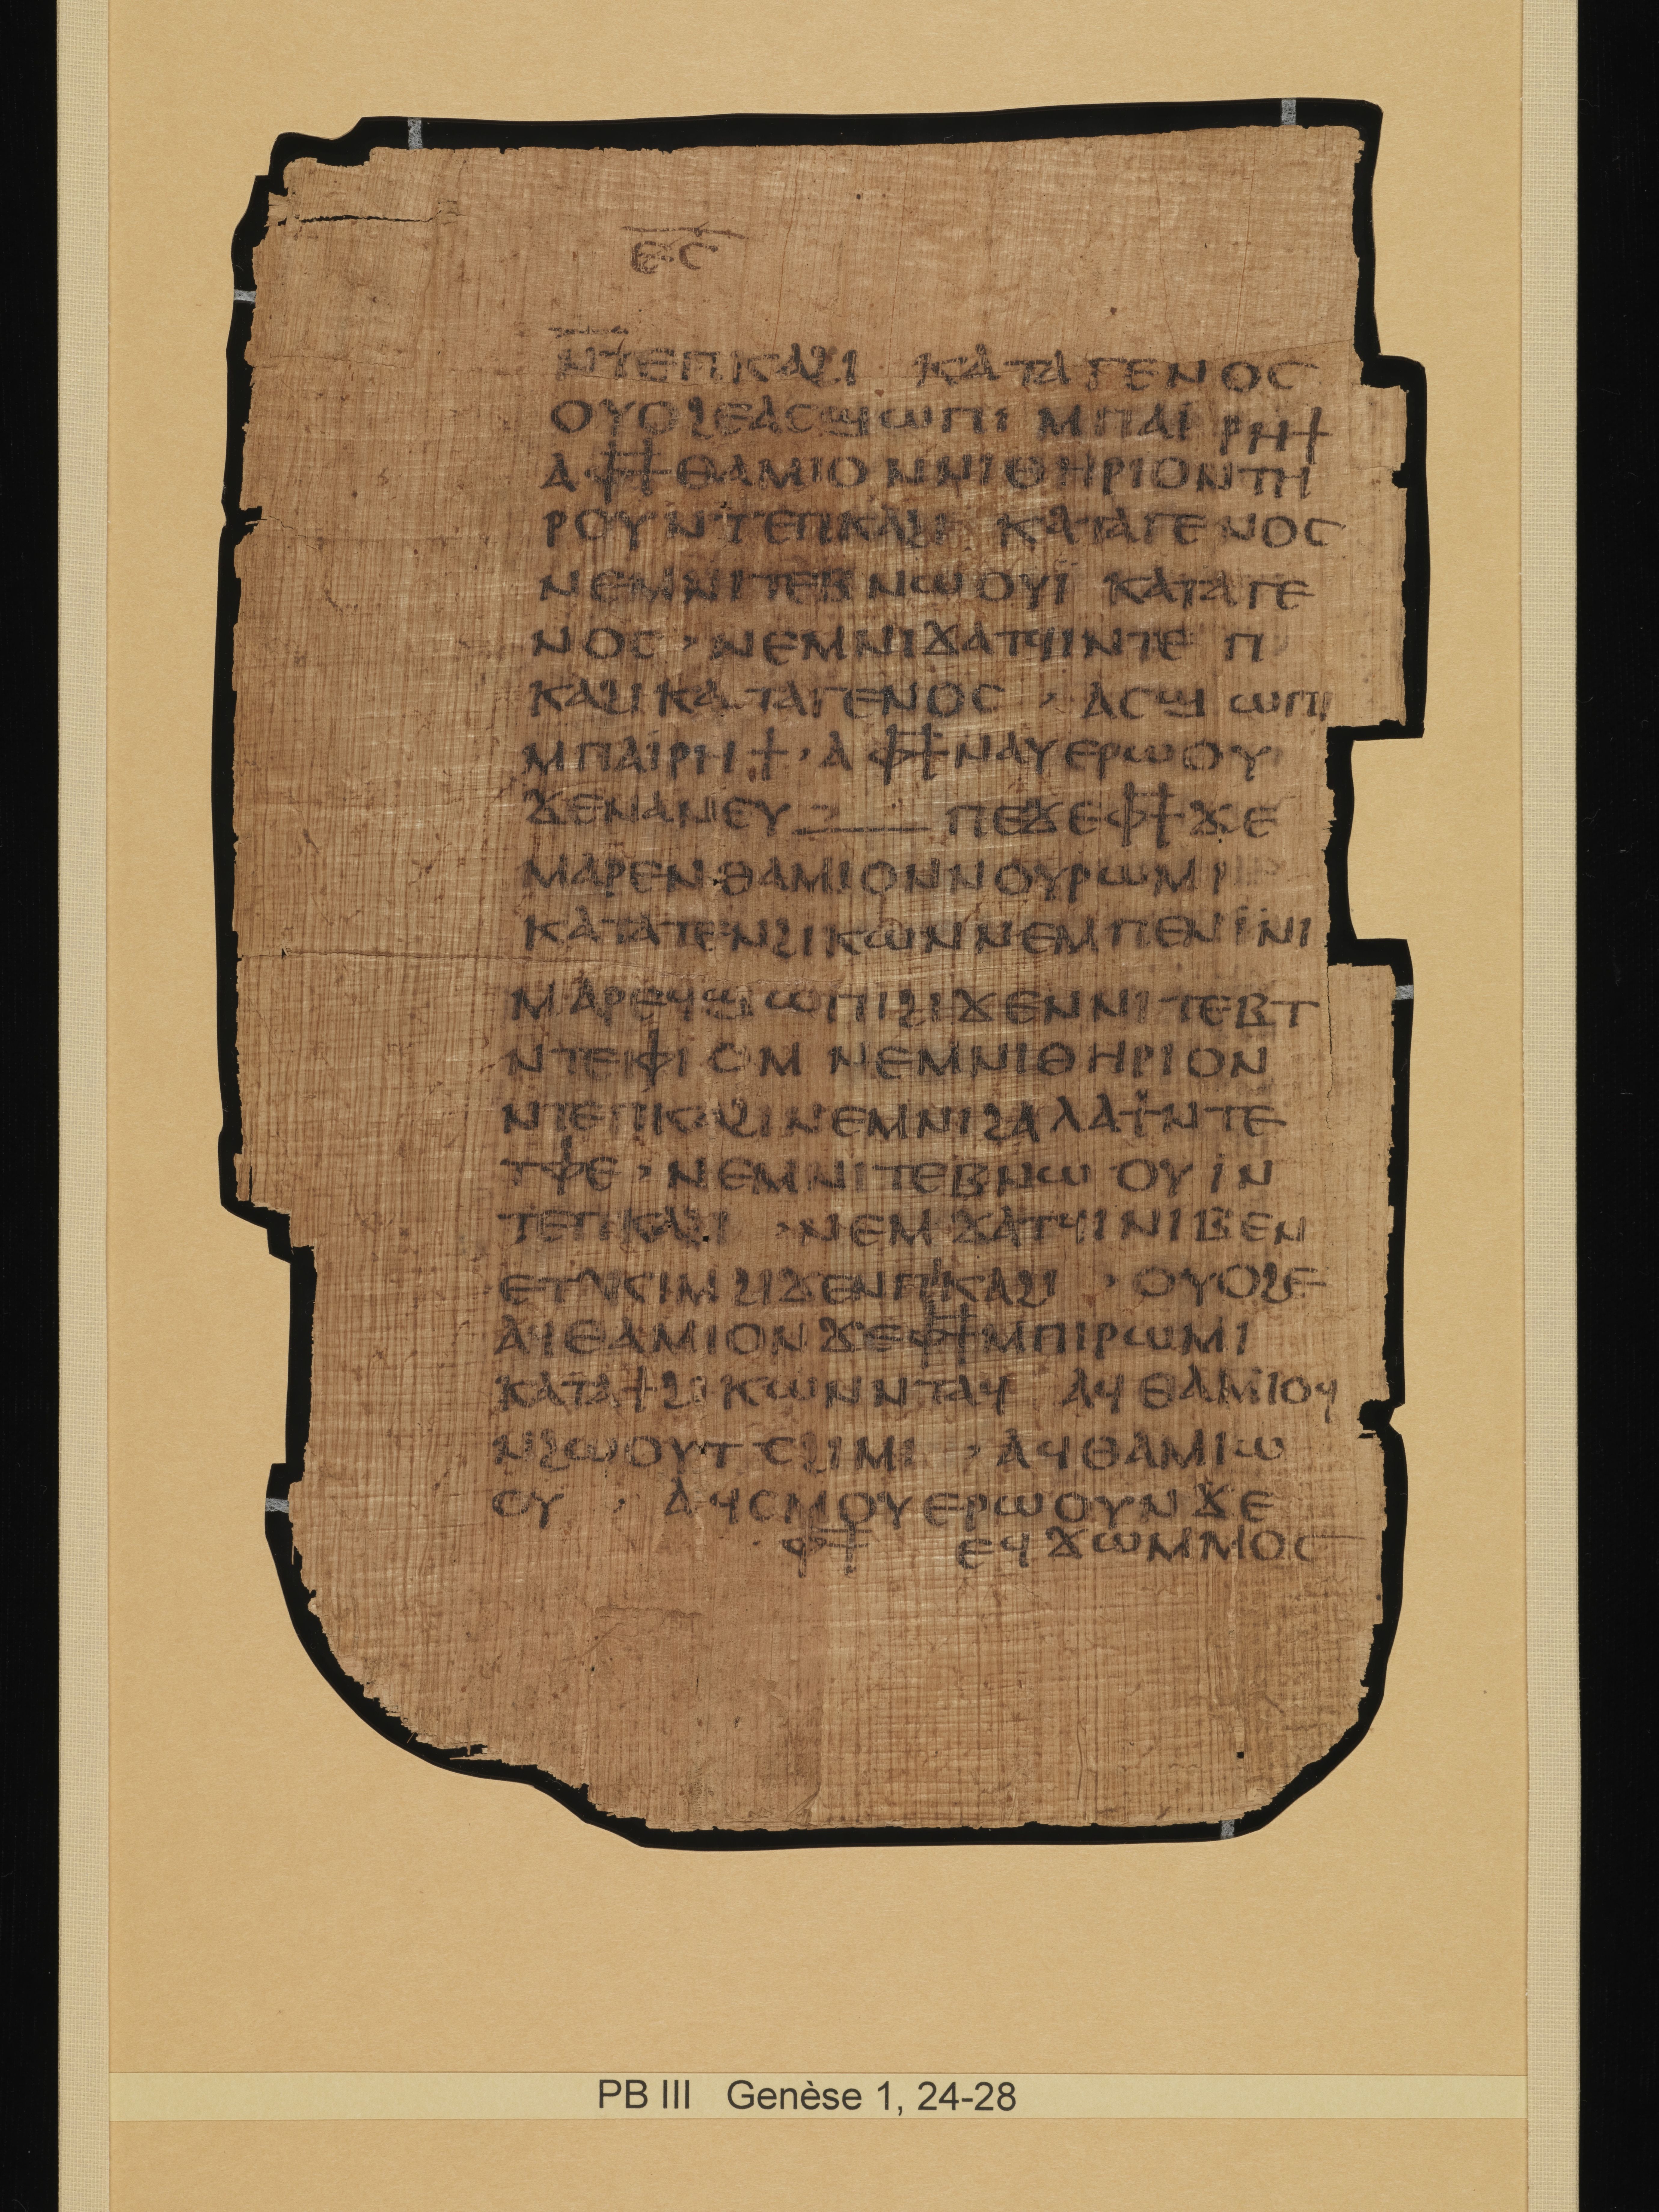 ⲉⲥ
ⲛⲧⲉⲡⲕⲁϩⲓ ⲕⲁⲧⲁⲅⲉⲛⲟⲥ
ⲟⲩⲟϩⲉⲁⲥϣⲱⲡⲓ ⲙⲡⲁⲓ̈ ⲣⲏϯ
ⲁⲫϯⲑⲁⲙⲓⲟ ⲛⲛⲓⲑⲏⲣⲓⲟⲛⲧⲏ
ⲣⲟⲩⲛⲧⲉⲡⲕⲁϩⲓ ⲕⲁⲧⲁⲅⲉⲛⲟⲥ
ⲛⲉⲙⲛⲓⲧⲉⲃⲛⲱⲟⲩⲓ̈ ⲕⲁⲧⲁⲅⲉ
ⲛⲟⲥ · ⲛⲉⲙⲛⲓϫⲁⲧϥⲓⲛⲧⲉ ⲡ
ⲕⲁϩⲓⲕⲁⲧⲁⲅⲉⲛⲟⲥ · ⲁⲥϣⲱⲡⲓ
ⲙⲡⲁⲓ̈ⲣⲏϯ · ⲁⲫϯⲛⲁⲩⲉⲣⲱⲟⲩ
ϫⲉⲛⲁⲛⲉⲩ ⲡⲉϫⲉⲫϯϫⲉ
ⲙⲁⲣⲉⲛⲑⲁⲙⲓⲟⲛⲛⲟⲩⲣⲱⲙⲓ
ⲕⲁⲧⲁⲧⲉⲛϩⲓⲕⲱⲛⲛⲉⲙⲡⲉⲛⲓ̈ⲛⲓ
ⲙⲁⲣⲉϥϣⲱⲡⲓϩⲓϫⲉⲛⲛⲓⲧⲉⲃⲧ
ⲛⲧⲉⲫⲓⲟⲙ ⲛⲉⲙⲛⲓⲑⲏⲣⲓⲟⲛ
ⲛⲧⲉⲡⲕⲁϩⲓⲛⲉⲙⲛⲓϩⲁⲗⲁϯⲛⲧⲉ
ⲧⲫⲉ · ⲛⲉⲙⲛⲓⲧⲉⲃⲛⲱⲟⲩⲓ̈ⲛ
ⲧⲉⲡⲕⲁϩⲓ · ⲛⲉⲙϫⲁⲧϥⲓⲛⲓⲃⲉⲛ
ⲉⲧⲕⲓⲙϩⲓϫⲉⲛⲡⲓⲕⲁϩⲓ · ⲟⲩⲟϩⲉ
ⲁϥⲑⲁⲙⲓⲟⲛϫⲉⲫϯⲙⲡⲓⲣⲱⲙⲓ
ⲕⲁⲧⲁϯϩⲓⲕⲱⲛⲛⲧⲁϥ ⲁϥⲑⲁⲙⲓⲟϥ
ⲛϩⲱⲟⲩⲧ ⲥϩⲓⲙⲓ · ⲁϥⲑⲁⲙⲓⲱ
ⲟⲩ · ⲁϥⲥⲙⲟⲩⲉⲣⲱⲟⲩⲛϫⲉ
ⲫϯ ⲉϥϫⲱⲙⲙⲟⲥ
PB III Genèse 1, 24-28